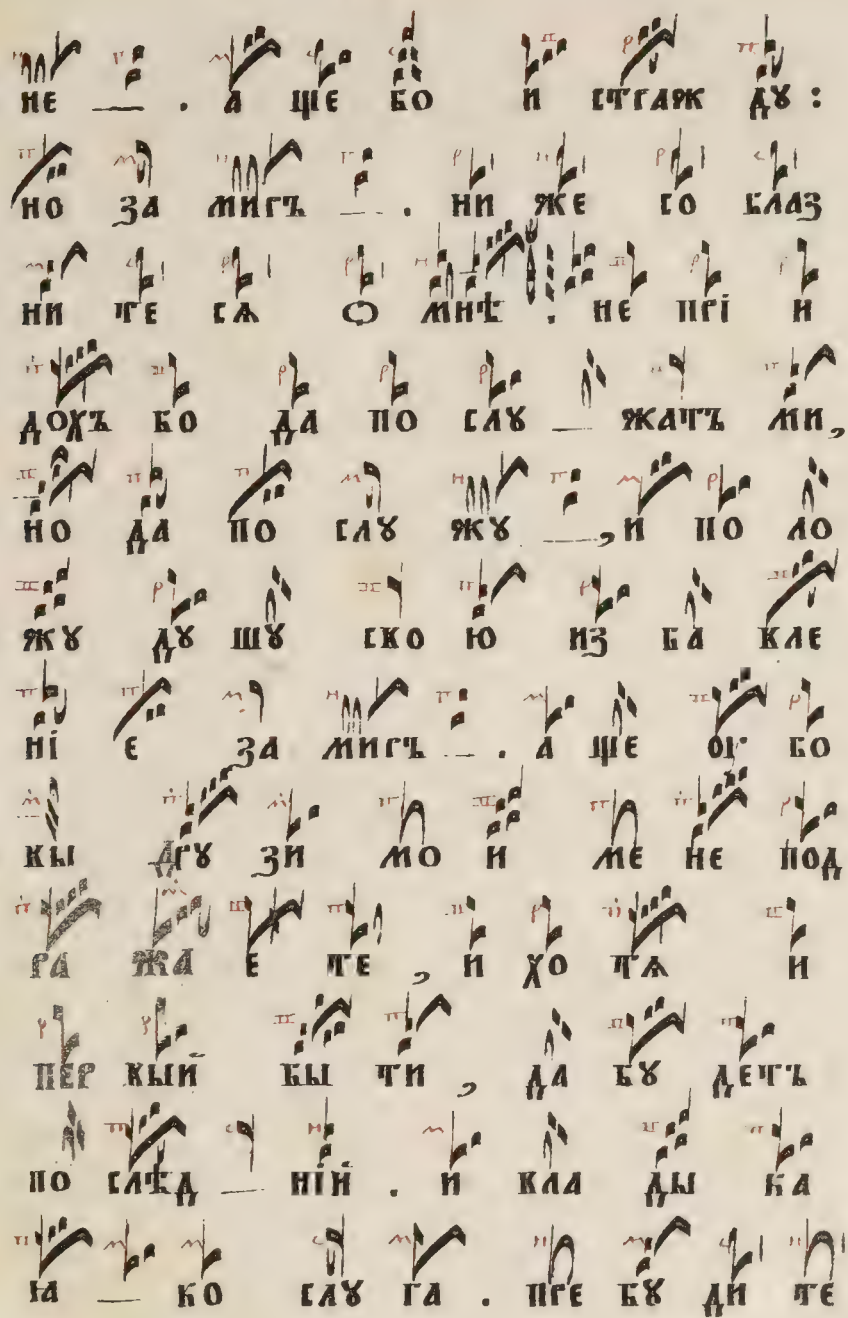 НЕ — . А ЩЕ БО И СТРАЖ ДУ :
НО ЗА МИРЪ — . НИ ЖЕ СО БЛАЗ
НИ ТЕ СѦ О МНѢ . НЕ ПРІ И
ДОХЪ БО ДА ПО СЛУ — ЖАТЪ МИ ,
НО ДА ПО СЛУ ЖУ — , И ПО ЛО
ЖУ ДУ ШУ СВО Ю ИЗ БА ВЛЕ
НІ Е ЗА МИРЪ — . А ЩЕ ОУ БО
ВЫ ДРУ ЗИ МО И МЕ НЕ ПОД
РА ЖА Е ТЕ , И ХО ТѦ И
ПЕР ВЫЙ БЫ ТИ , ДА БУ ДЕТЪ
ПО СЛѢД — НІЙ . И ВЛА ДЫ КА
ІА — КО СЛУ ГА . ПРЕ БУ ДИ ТЕ